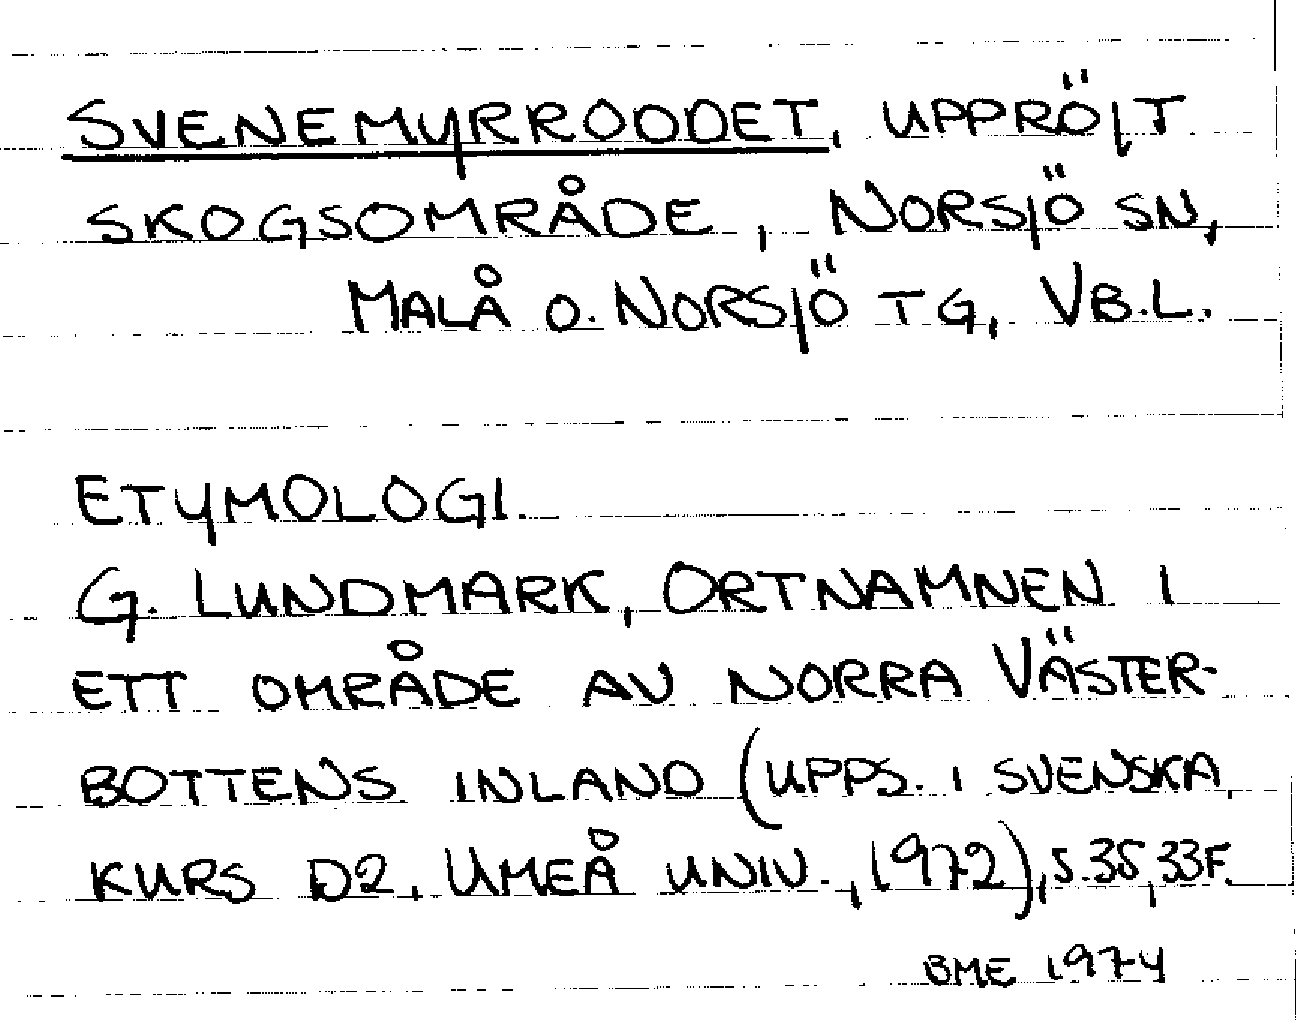 SVENEMYRRODDET, UPPRÖJT
SKOGSOMRÅDE, NORSJÖ SN,
MALÅ O. NORSJÖ TG, VB.L.
ETYMOLOGI.
G. LUNDMARK, ORTNAMNEN I
ETT OMRÅDE AV NORRA VÄSTER-
BOTTENS INLAND (UPPS. I SVENSKA,
KURS D2, UMEÅ UNIV., 1972), S. 35, 33F.
BME 1974